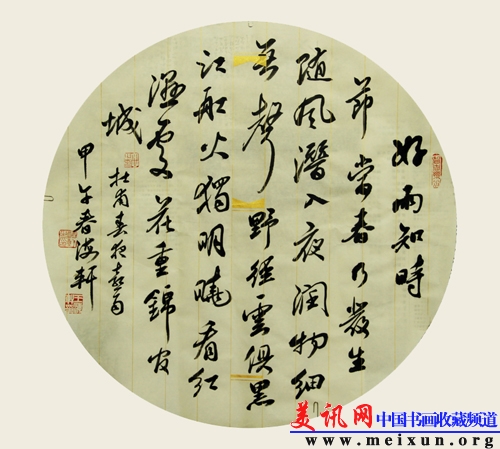 好雨知時
節當春乃發生
随风潛入夜润物细
無聲野徑雲俱黑
江船火獨明曉看红
濕處花重錦官
城
杜甫春夜喜雨
甲午春海軒
美讯网 中国书画收藏频道
www.meixun.org